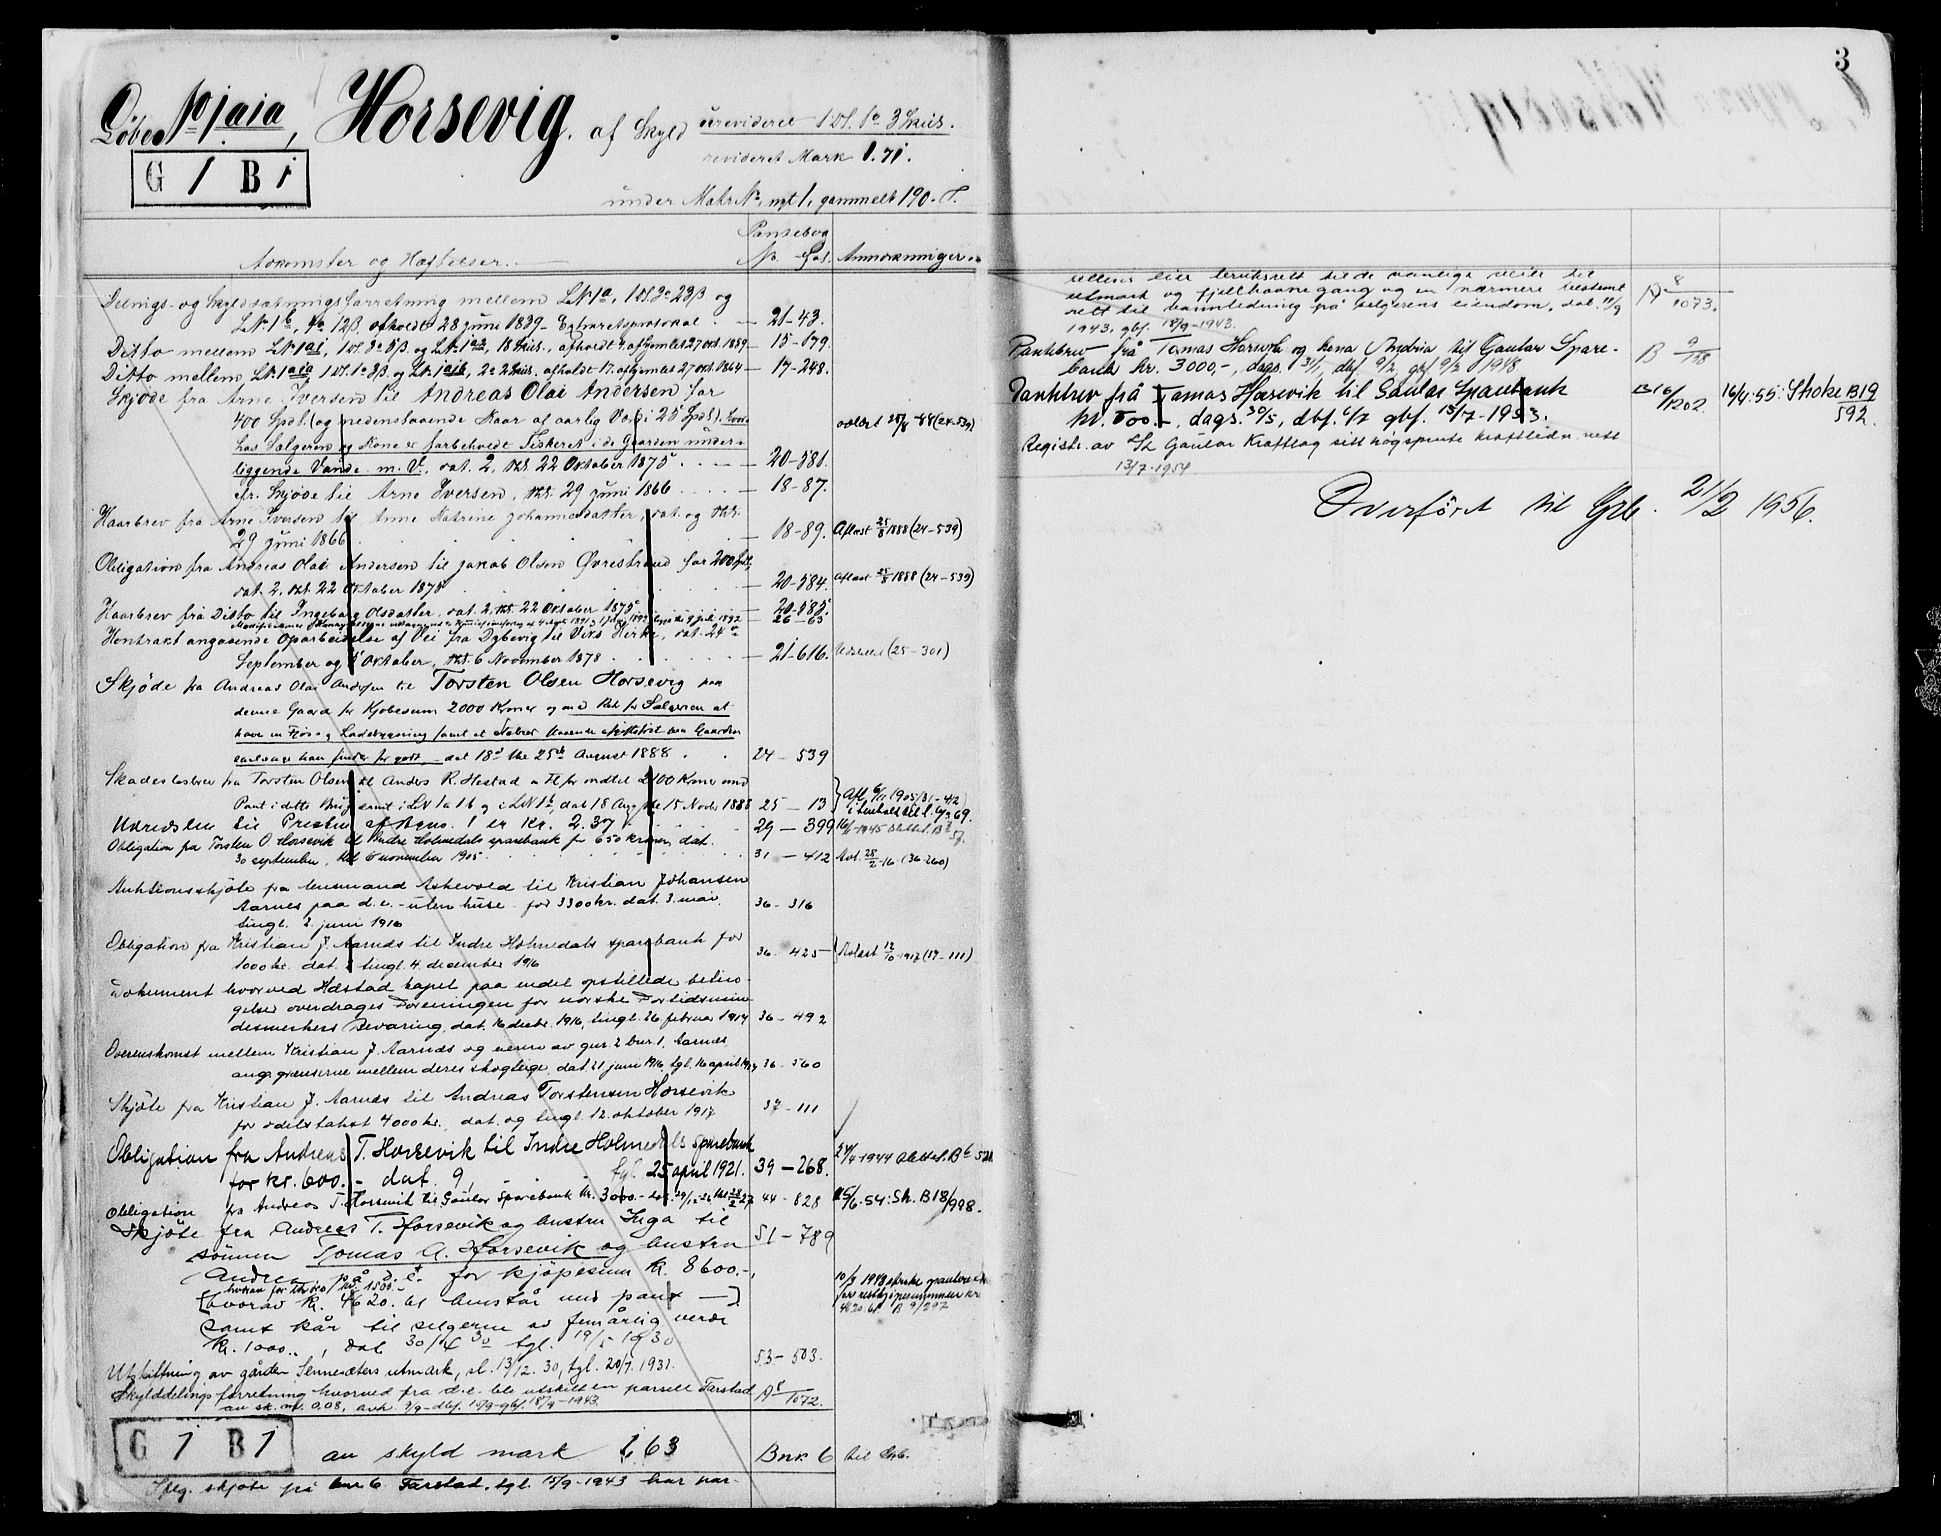 Løbe No 1aia, Horsevig. af Skyld urevideret 1 Dl. 1o 3 Skil.
revideret Mark 1.71.
G 1 B 1
under Matr No nyt 1, gammelt 190.
Pantebog
Adkomster og Hæftelser. No. Fol. Anmærkninger.
Delings- og Skyldsætningsforretning mellem LNo 1a, 1 Dl 3o 23β og
LNo 1b, 12β, afholdt 28 juni 1839 - Extraretsprotokol - 21-43.
Ditto mellem LNo 1ai, og LNo 1a2, 18 Skil., afholdt 4. afhjemlet 27 okt. 1859 - 15-679.
Ditto mellem LNo 1aia, og LNo 1aib, 2o 2 Skil. afholdt 17. afhjemlet 27 okt. 1864 - 17-248.
Skjøde fra Arne Iversen til Andreas Olai Andersen for
400 Spdl. (og nedenstaaende Kaar af aarlig Værdi 25 Spdl.).
has Sælgeren og Kone er forbeholdt Fiskeret i de Gaarden under-
liggende Vande m. V., dat. 2, tht. 22 Oktober 1875 - 20-581.
cfr. Skjøde til Arne Iversen, tht. 29 juni 1866 - 18-87.
Kaarbrev fra Arne Iversen til Anne Katrine Johannesdatter, dat. og tht.
29 juni 1866 - 18-89. Aflæst 25/8 1888 (24-539)
Obligation fra Andreas Olai Andersen til Jakob Olsen Øvrestrand for 200 Spdl.,
dat. 2, tht. 22 Oktober 1875 - 20-584. Aflæst 25/8 1888 (24-539)
Kaarbrev fra Ditto til Ingeborg Olsdatter, dat. 2, tht. 22 Oktober 1875 - 20-585.
26-63
Kontrakt angaaende Oparbeidelse af Vei fra Dybevig til Viks Kirke, dat. 24de
September og 5 Oktober, tht. 6 November 1878 - 21-616. (25-301)
Skjøde fra Andreas Olai Andersen til Torsten Olsen Horsevig paa
denne Gaard for Kjøbesum 2000 Kroner og med Ret for Sælgeren at
have en Flor- og Ladebygning samt et
saalænge han finder for godt, dat 18d tht 25de August 1888 . . 24 - 539
Skadesløsbrev fra Torsten Olsen til Anders R. Hestad for indtil 2100 Kroner med
Pant i dette Brug samt i LN 1a 1b og i LN 1b, dat 18 Aug tht 15 Novbr 1888 25 - 13 Afl. 6/11 1905 (31-412)
Udredsler til Presten af Bgns. 1 er Kr. 2.37 29 - 399
Obligation fra Torsten O Horsevik til Indre Holmedals sparebank for 650 kroner, dat.
30 september, tht 6 november 1905 31 - 412 Avl. 28/2-16 (36-260)
Auktionsskjøte fra lensmand Askevold til Kristian Johansen
Aarnes paa d. e. - uten huse - for 3300 kr. dat. 3. mai,
tingl. 2. juni 1916 36 - 316
Obligation fra Kristian J. Aarnes til Indre Holmedals sparebank for
1000 kr. dat. 2 tingl. 4. december 1916 36 - 425 Avlæst 12/10-1917 (37-111)
Dokument hvorved Hæstad kapel paa endel opstillede betin-
gelser overdrages Foreningen for norske Fortidsmin-
desmerkers Bevaring, dat. 16 decbr. 1916, tingl. 26. februar 1917 36 - 492
Overenskomst mellem Kristian J. Aarnes og eieren av gnr. 2 bnr. 1, Aarnes
ang. grænserne mellem deres skogteige, dat. 21 juni 1916, tgl. 16 april 1917 36 - 560
Skjøte fra Kristian J. Aarnes til Andreas Torstensen Horsevik
for odelstakst 4000 kr., dat. og tingl. 12. oktober 1917 37 - 111
Obligation fra Andreas T. Horsevik til Indre Holmedals sparebank
for kr. 600.- dat. 9, tgl. 25 april 1921. 39 - 268. 24/4 1944 slettet. B6
Obligation fra Andreas T. Horsevik til Gaular Sparebank kr. 3000.- 44 - 828 15/6-54: Sk. B18/998.
Skjøte fra Andreas T. Horsevik og hustru Inga til
sønnen Tomas A. Horsevik og hustru 51 - 789
Andrea på d. e. for kjøpesum kr. 8600.-,
hvorav for løsøre kr. 1500.-
(hvorav kr. 4620. bl henstår med pant - )
samt kår til selgerne av femårlig verdi
kr. 1000.-, dat 30/4 30 tgl. 19/5 1930
Utskiftning av gården Sennesæters utmark, sl. 13/12. 30, tgl. 20/7. 1931. 53 - 503.
Skylddelingsforretning hvorved fra d.e. ble utskilt en parsell Farstad
av sk. mk. 0,08, avh. 3/9 - dbf. 15/9 - gbf. 18/9 - 1943. A 8/1072.
G 1 B 1 av skyld mark 1,63 Bnr 6 til Grb.
Iflg. skjøte på bnr 6 Farstad, tgl. 15/9-1943 har par-
3
sellens eier bruksrett til de vanlige veier til
utmark og fjellhavnegang og en nærmere bestemt
rett til vannledning på selgerens eiendom, dat. 11/9
1943, gbf. 18/9-1943. A 8/1073.
Pantebrev frå Tomas Horsevik og kona Andrea til Gaular Spare-
bank kr. 3000,-, dags. 31/1, dbf. 9/2, gbf. 9/2 1948 B 9/198
Pantebrev frå Tomas Horsevik til Gaular Sparebank B16/1202 16/4:55: Stroke B19/592.
kr. 500.-, dags. 30/5, dbf. 6/7 gbf. 13/7-1953.
Registr. av A/L Gaular Kraftlag sitt høgspente kraftleidn. nett
13/7-1954
Overført til Grb. 21/2 1956.